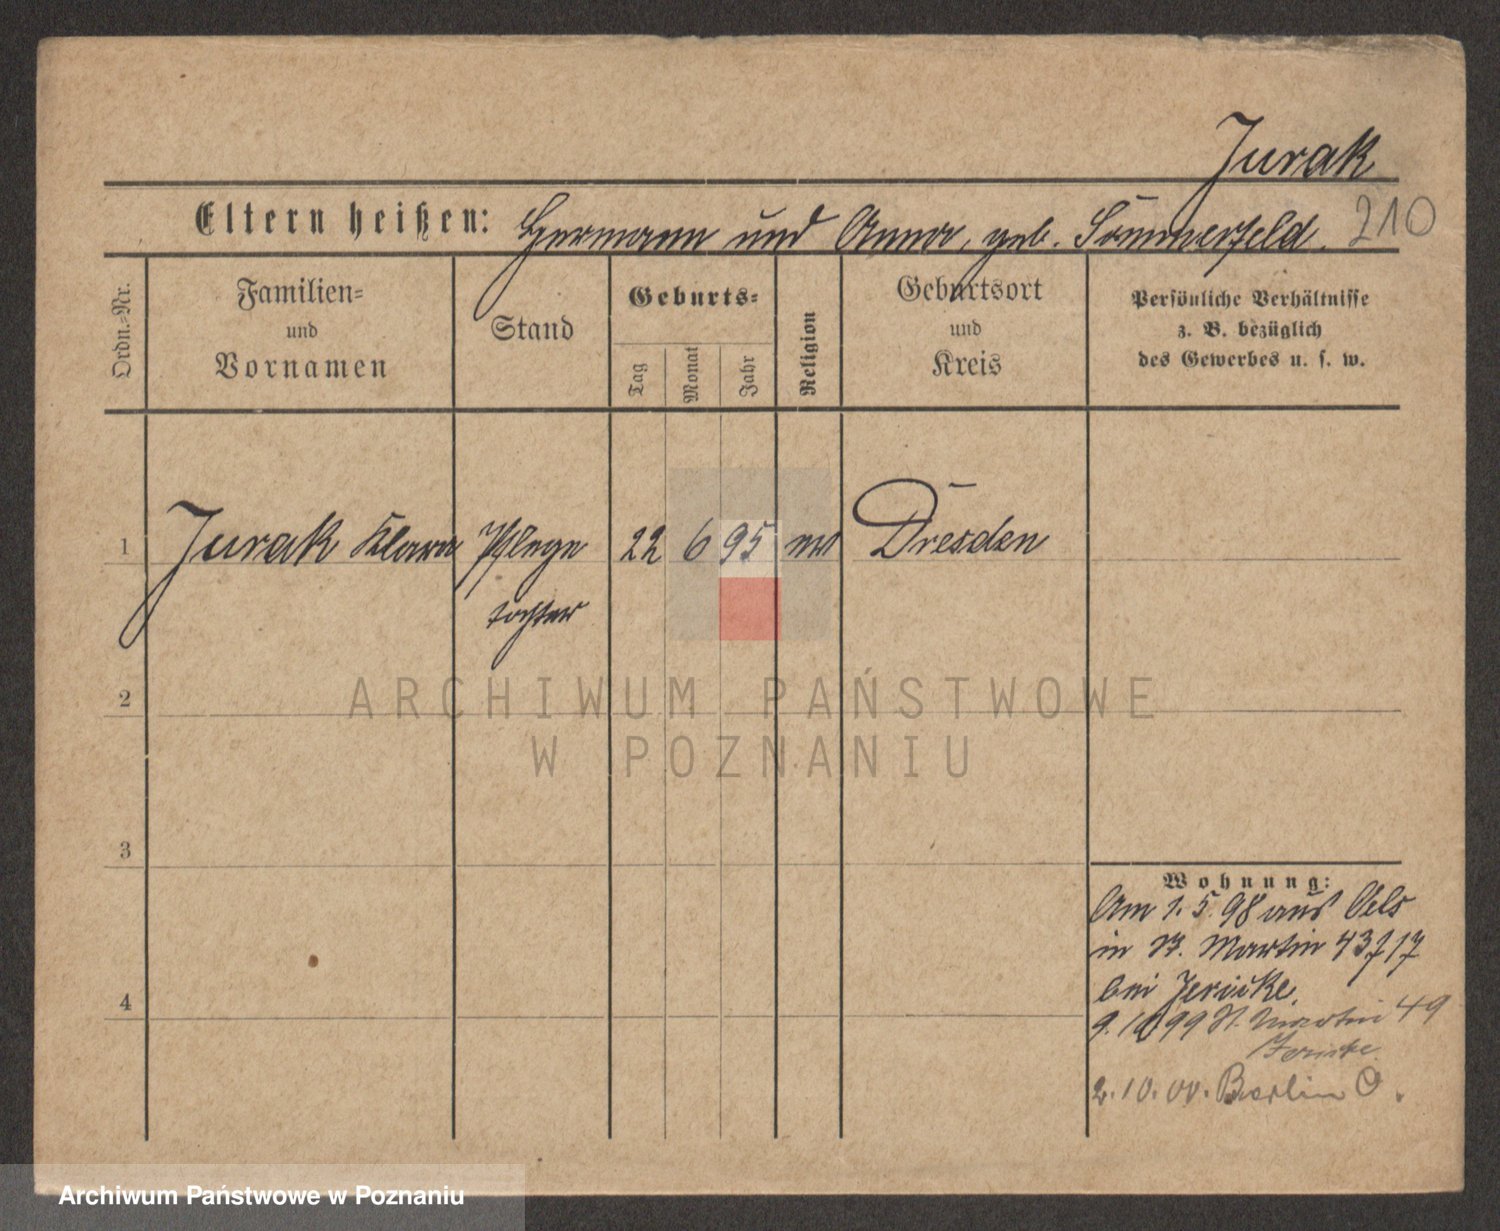 Jurak
Eltern heißen: Hermann und Anna, geb. Sommerfeld. 210
Ordn.-Nr.
Familien-
und
Vornamen
Stand
Geburts-
Tag
Monat
Jahr
Religion
Geburtsort
und
Kreis
Persönliche Verhältnisse
z. B. bezüglich
des Gewerbes u. s. w.
1 Jurak Klara Pflege 22 6 95 ev Dresden
tochter
2
3
4
Wohnung:
Am 1. 5. 98 aus Oels
in St. Martin 43
bei Jericke.
9. 10 99 St. Martin 49
Jericke
2. 10. 00. Berlin O.
ARCHIWUM PAŃSTWOWE
W POZNANIU
Archiwum Państwowe w Poznaniu